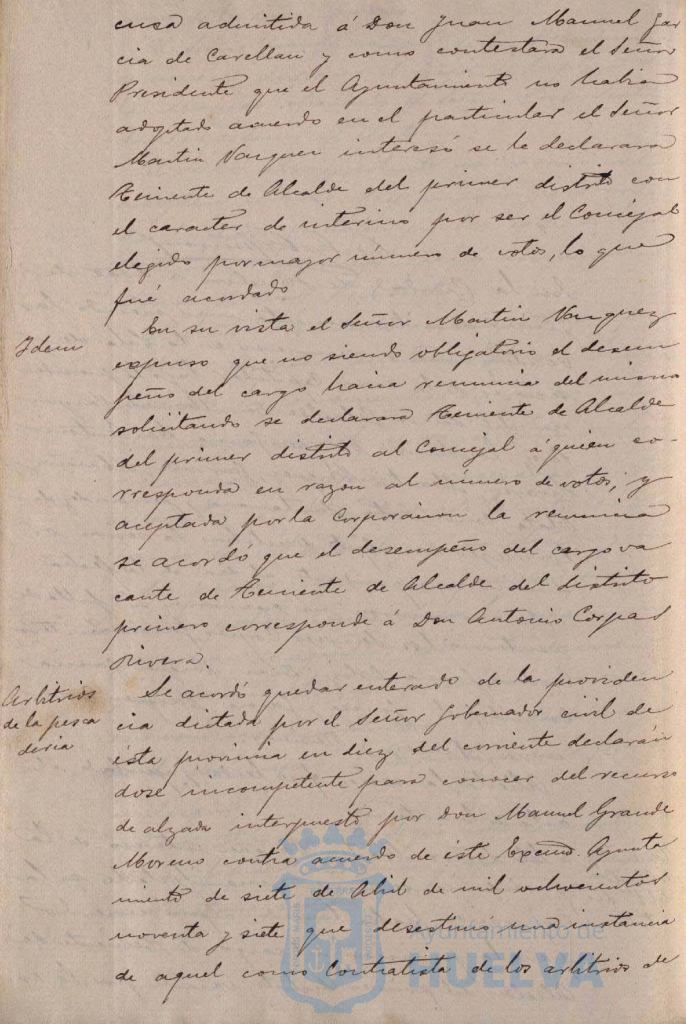 cusa admitida á Don Juan Manuel Gar
cia de Carellan y como contestara el Señor
Presidente que el Ayuntamiento no habia
adoptado acuerdo en el particular el Señor
Martin Vazquez interesó se le declarara
Teniente de Alcalde del primer distrito con
el caracter de interino por ser el Concejal
elegido por mayor número de votos, lo que
fué acordado
Idem
En su vista el Señor Martin Vazquez
expuso que no siendo obligatorio el desem
peño del cargo hacia renuncia del mismo
solicitando se declarara Teniente de Alcalde
del primer distrito al Concejal á quien co-
rresponda en razon al número de votos; y
aceptada por la Corporacion la renuncia
se acordó que el desempeño del cargo va
cante de Teniente de Alcalde del distrito
primero corresponde á Don Antonio Corpas
Rivera.
Arbitrios
de la pesca
deria
Se acordó quedar enterado de la providen
cia dictada por el Señor Gobernador civil de
esta provincia en diez del corriente declarán
dose incompetente para conocer del recurso
de alzada interpuesto por Don Manuel Grande
Moreno contra acuerdo de este Excmo. Ayunta
miento de siete de Abril de mil ochocientos
noventa y siete que desestimó una instancia
de aquel como Contratista de los arbitrios de
Ayuntamiento de
HUELVA